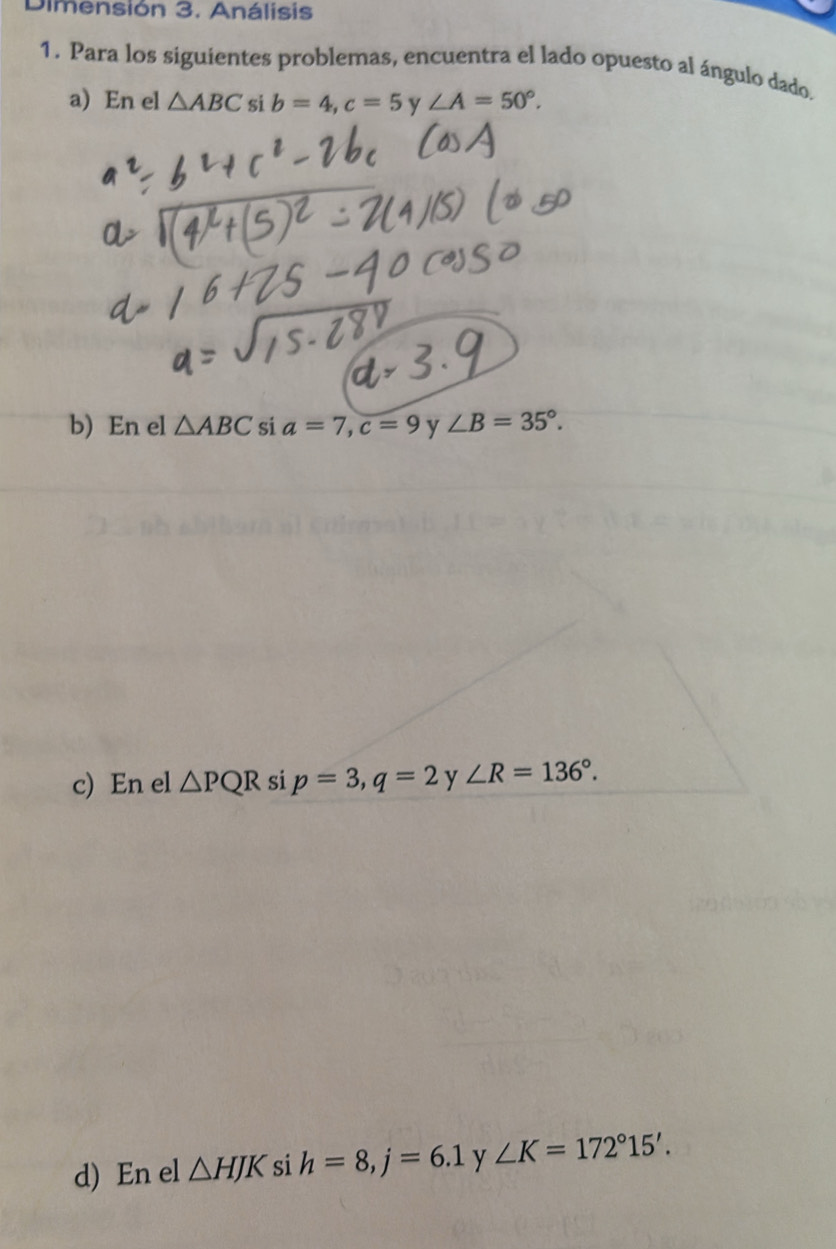 Dimensión 3. Análisis
1. Para los siguientes problemas, encuentra el lado opuesto al ángulo dado.
a) En el △ABC si b = 4, c = 5 y ∠A = 50°.
a² = b² + c² - 2bc Cos A
a = √(4)² + (5)² - 2(4)(5) Cos 50
a = 16 + 25 - 40 cos 50
a = √15.288
a = 3.9
b) En el △ABC si a = 7, c = 9 y ∠B = 35°.
c) En el △PQR si p = 3, q = 2 y ∠R = 136°.
d) En el △HJK si h = 8, j = 6.1 y ∠K = 172°15′.